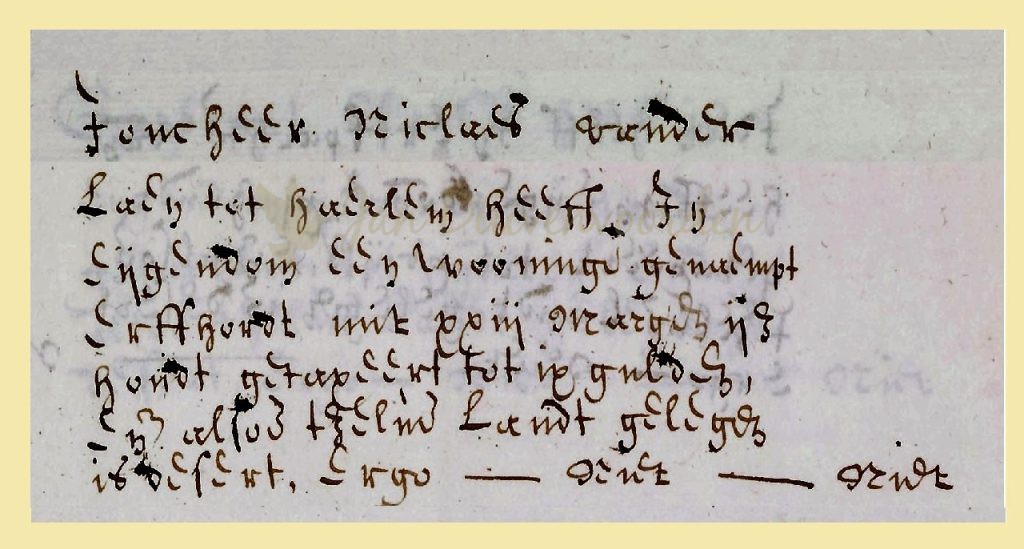 Joncheer Niclaes vander
Laen tot haerlem heeft In
Eijgendom een wooninge genaempt
Erffhordt mit xxiij Margen ijƷ
hondt getaxeert tot ix gulden,
En alsoe tzelve Landt gelegen
is desert, ergo — Niet — Niet